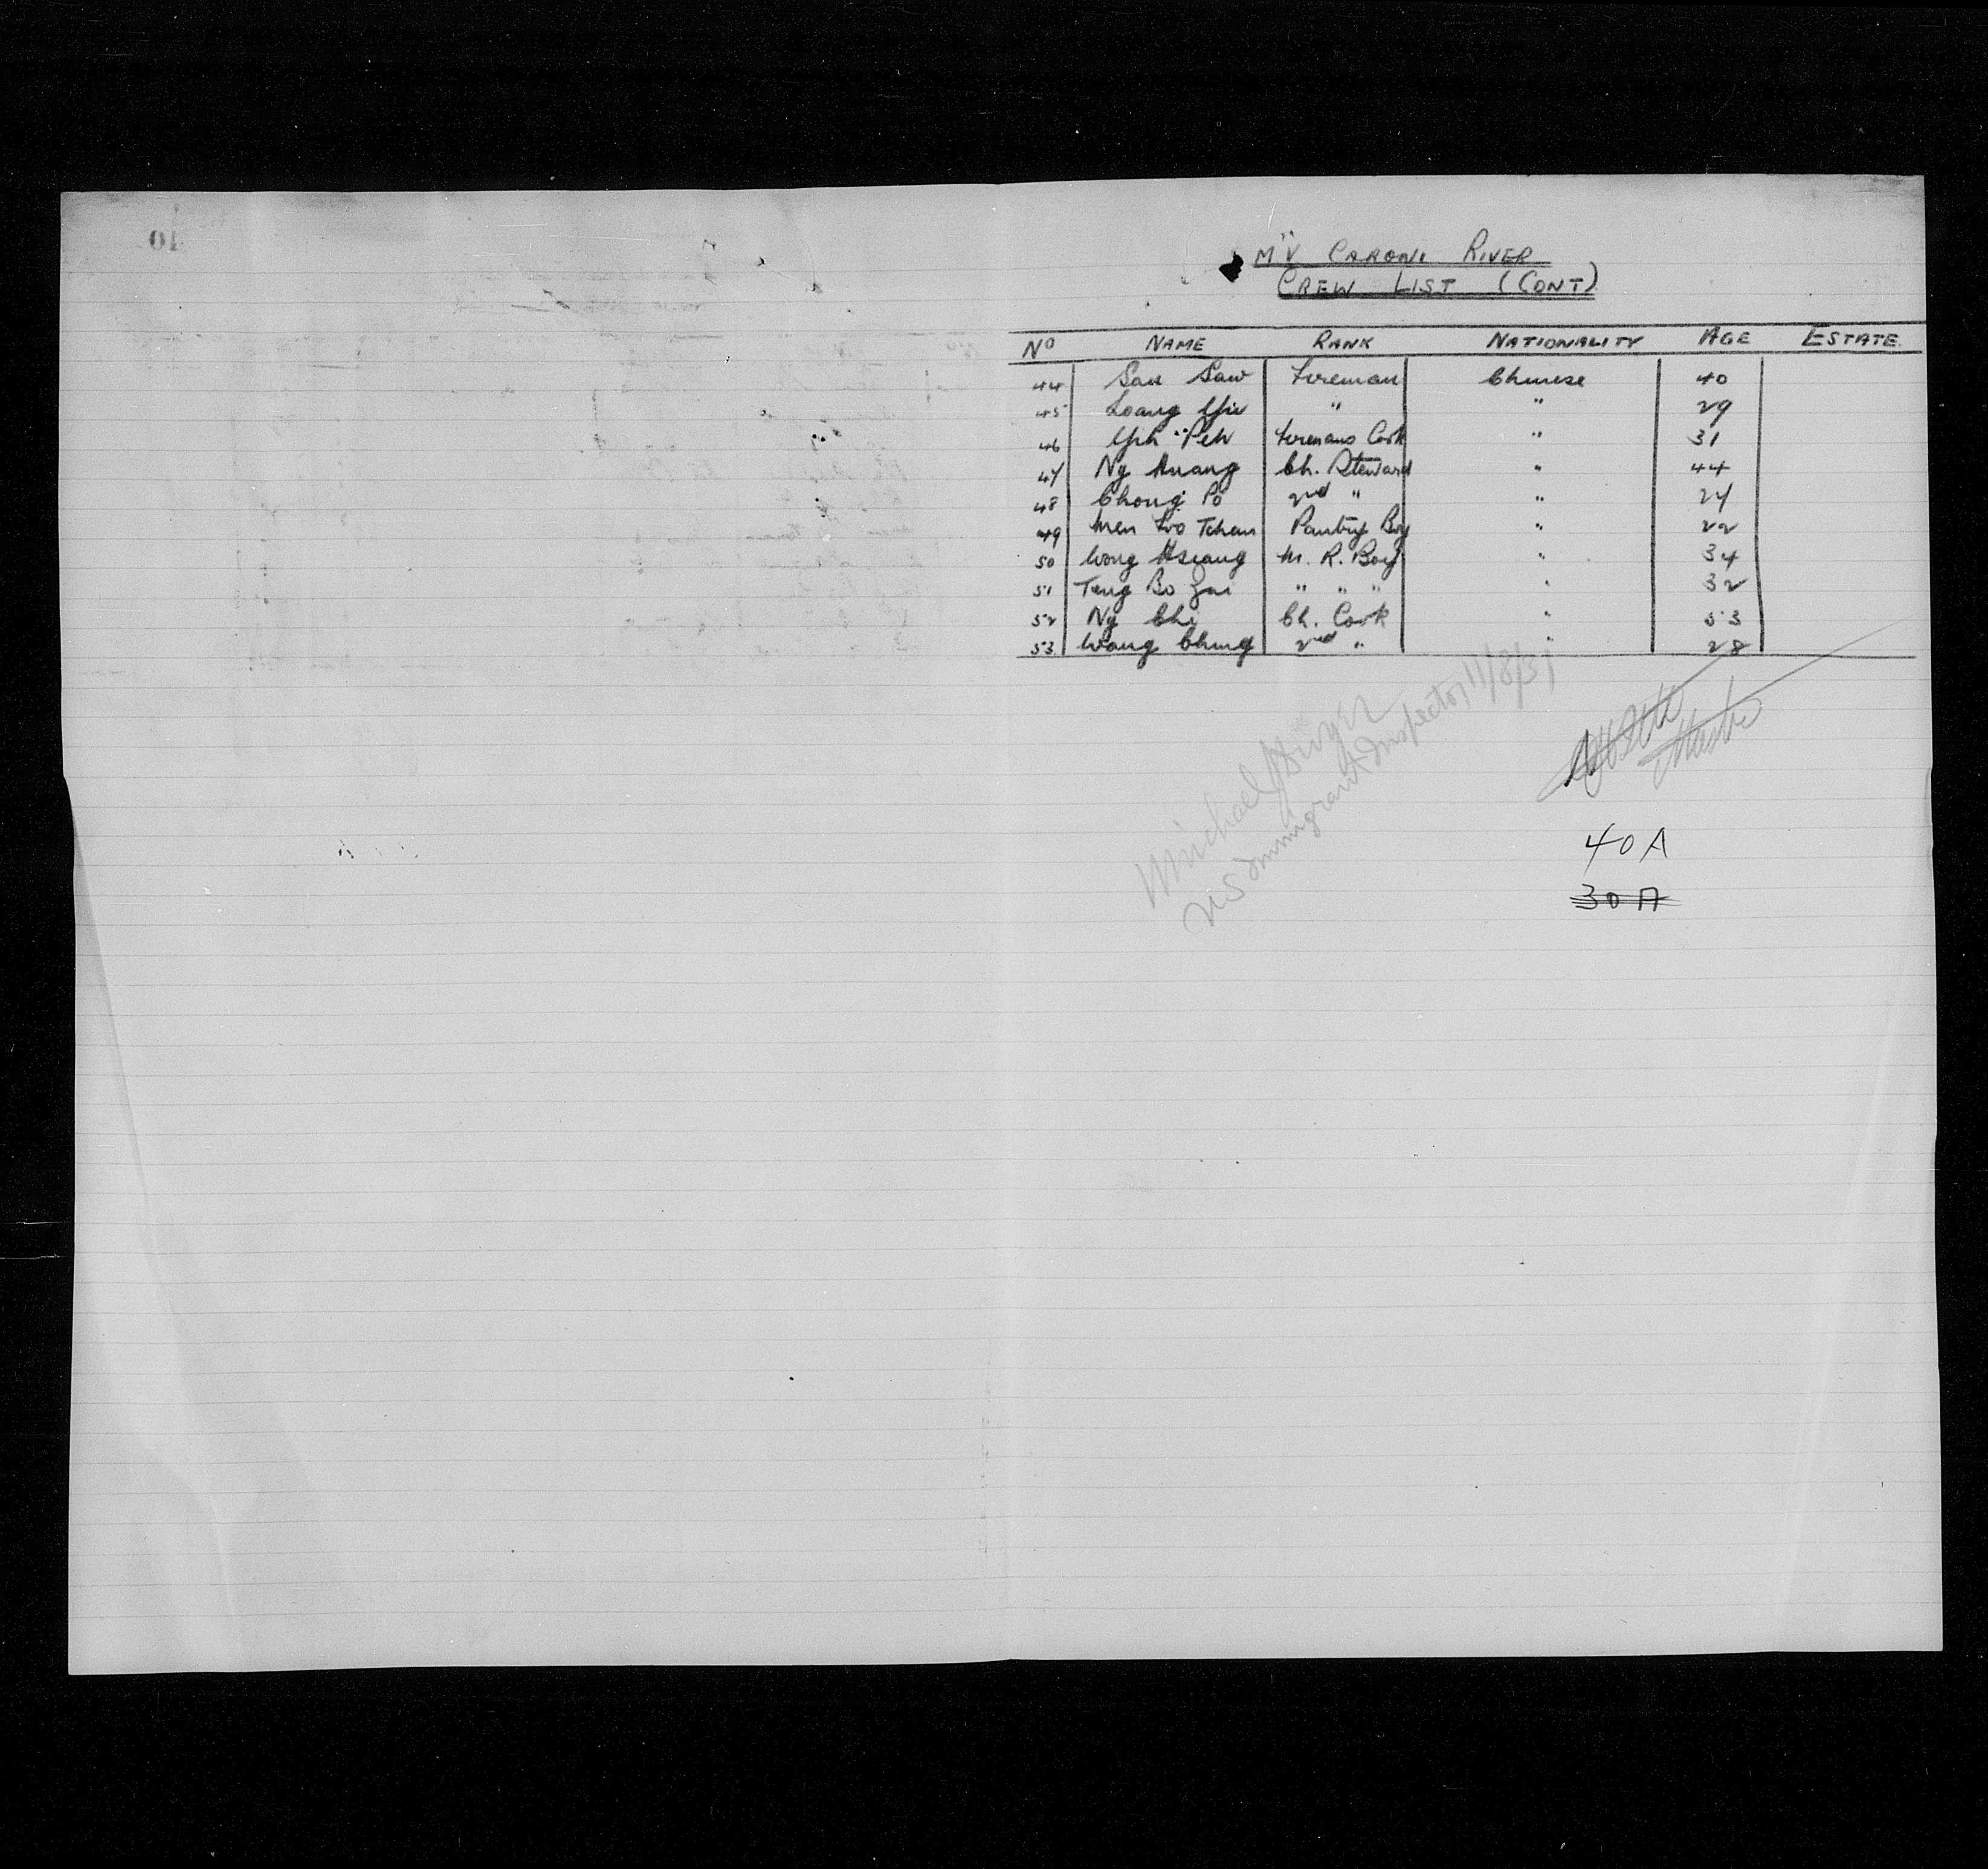 M"V CARONI RIVER
CREW LIST (CONT)
No NAME RANK NATIONALITY AGE ESTATE
44 San Saw Fireman Chinese 40
45 Loang Yin " " 29
46 Yih Peh Firemans Cook " 31
47 Ng Huang Ch. Steward " 44
48 Chong Po 2nd " " 27
49 Men Loo Tchan Pantry Boy " 22
50 Wong Hsiang M. R. Boy " 34
51 Teng Bo Zai " " " " 32
52 Ng Chi Ch. Cook " 53
53 Wang Ching 2nd " " 28
Michael
US Immigrant Inspector 11/8/31
Master
40A
30A